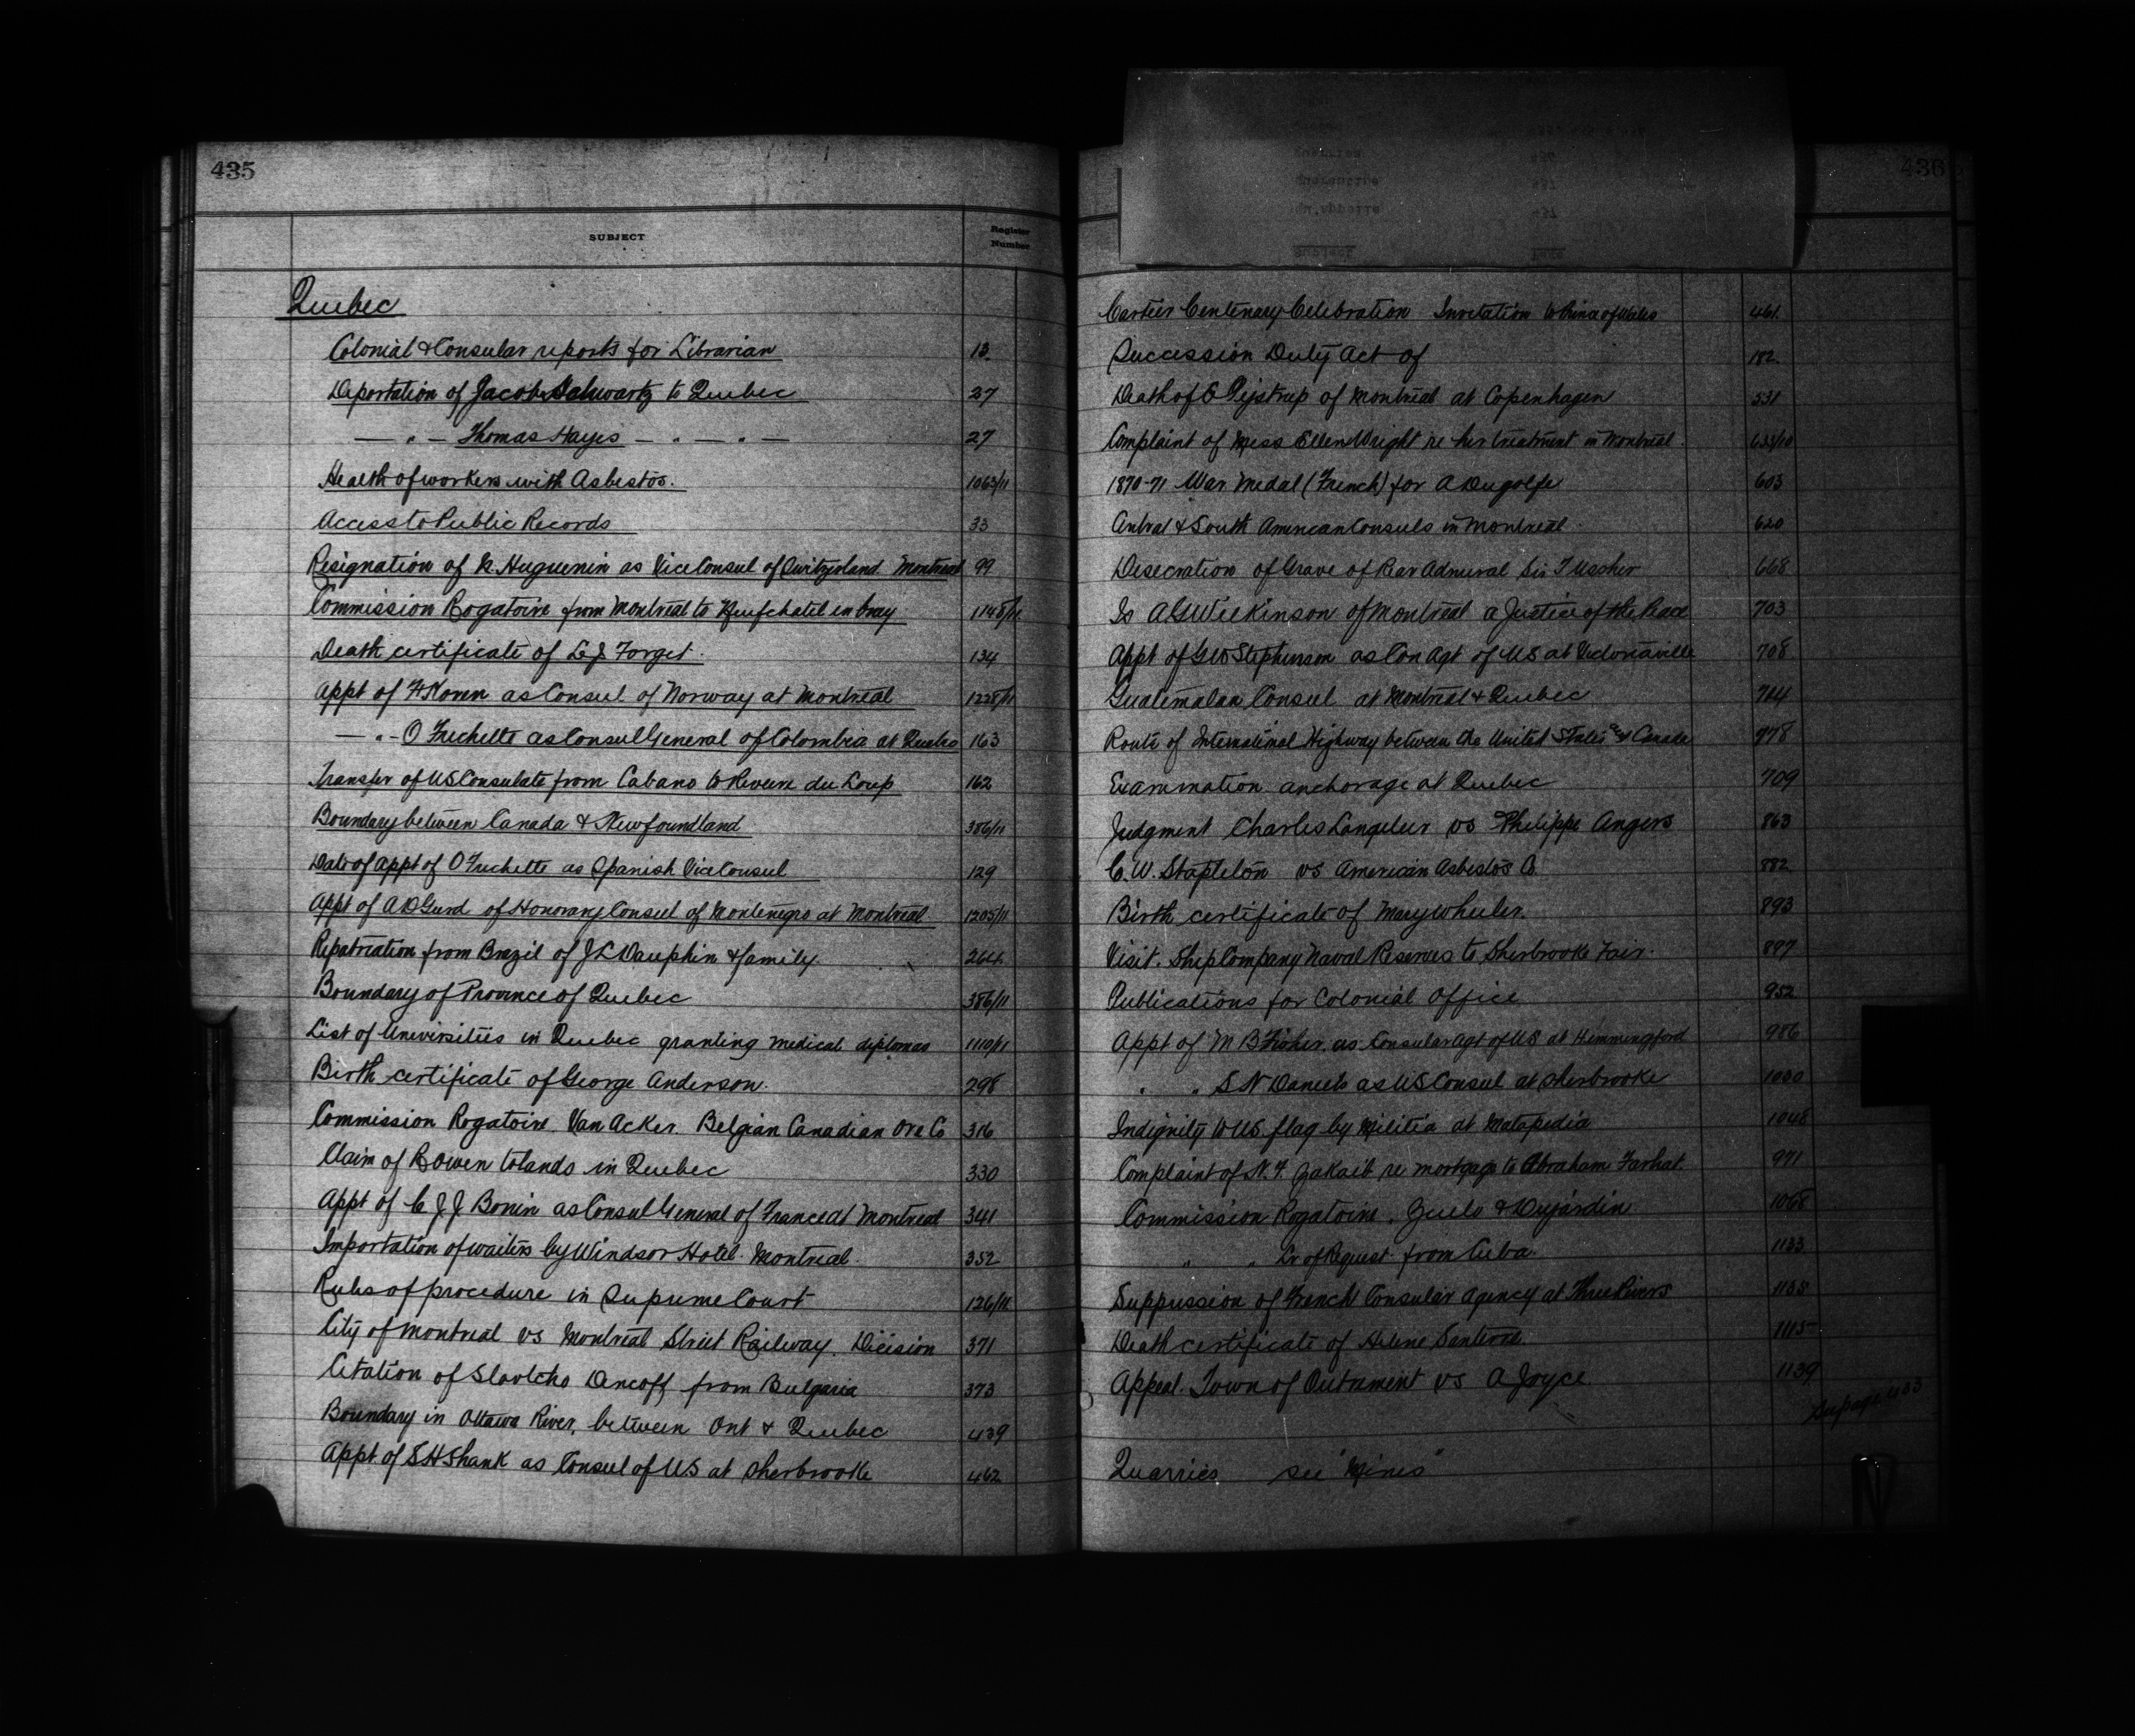 435
SUBJECT
Register Number
Quebec
Colonial & Consular reports for Librarian 13
Deportation of Jacob Schwartz to Quebec 27
— " — Thomas Hayes — " — " — 27
Health of workers with Asbestos. 1063/11
Access to Public Records 33
Resignation of N. Huguenin as Vice Consul of Switzerland Montreal 99
Commission Rogatoire from Montreal to Neufchatel en bray 1148/11
Death certificate of L J Forget. 134
Appt of F Koren as Consul of Norway at Montreal 1228/11
— " — O Frechette as Consul General of Colombia at Quebec 163
Transfer of US Consulate from Cabano to Riviere du Loup 162
Boundary between Canada & Newfoundland 386/11
Date of appt of O Frechette as Spanish Vice Consul 129
Appt of A D Gurd of Honorary Consul of Montenegro at Montreal 1205/11
Repatriation from Brazil of J L Dauphin & family. 264
Boundary of Province of Quebec 386/11
List of Universities in Quebec granting medical diplomas 1110/11
Birth certificate of George Anderson. 298
Commission Rogatoire. Van Acker. Belgian Canadian Ore Co 316
Claim of R Owen to lands in Quebec 330
Appt of C J J Bonin as Consul General of France at Montreal 341
Importation of waiters by Windsor Hotel. Montreal. 352
Rules of procedure in Supreme Court 126/11
City of Montreal vs Montreal Street Railway. Decision 371
Citation of Slavtcho Dencoff from Bulgaria 373
Boundary in Ottawa River, between Ont & Quebec 439
Appt of S H Shank as Consul of US at Sherbrooke 462
436
Cartier Centenary Celebration Invitation to Prince of Wales 461
Succession Duty Act of 182
Death of of Montreal at Copenhagen 531
Complaint of Miss Ellen Wright re her treatment in Montreal. 633/10
1870-71 War Medal (French) for A Dugolfe 603
Central & South American Consuls in Montreal. 620
Desecration of Grave of Rear Admiral Sir T Ussher 668
Is A G Wilkinson of Montreal a Justice of the Peace 703
Appt of G W Stephenson as Con Agt of US at Victoriaville 708
Guatemalan Consul at Montreal & Quebec 704
Route of International Highway between the United States and Canada 978
Examination anchorage at Quebec 709
Judgment Charles Langelier vs Philippe Angers 863
C. W. Stapleton vs American Asbestos Co 882
Birth certificate of Mary Wheeler. 893
Visit. Ship Company Naval Reserves to Sherbrooke Fair. 897
Publications for Colonial Office 952
Appt of M B Fisher as Consular Agt of US at Hemmingford 986
" " S N Daniels as US Consul at Sherbrooke 1030
Indignity to US. flag by Militia at Matapedia 1048
Complaint of N. F. Zakaib re mortgage to Abraham Farhat. 971
Commission Rogatoire. & Dujardin 1068
" " Lr of Request from Cuba. 1133
Suppression of French Consular Agency at Three Rivers 1135
Death certificate of Helene 1115
Appeal. Town of Outrament vs A Joyce 1139
See page 433
Quarries see "Mines"